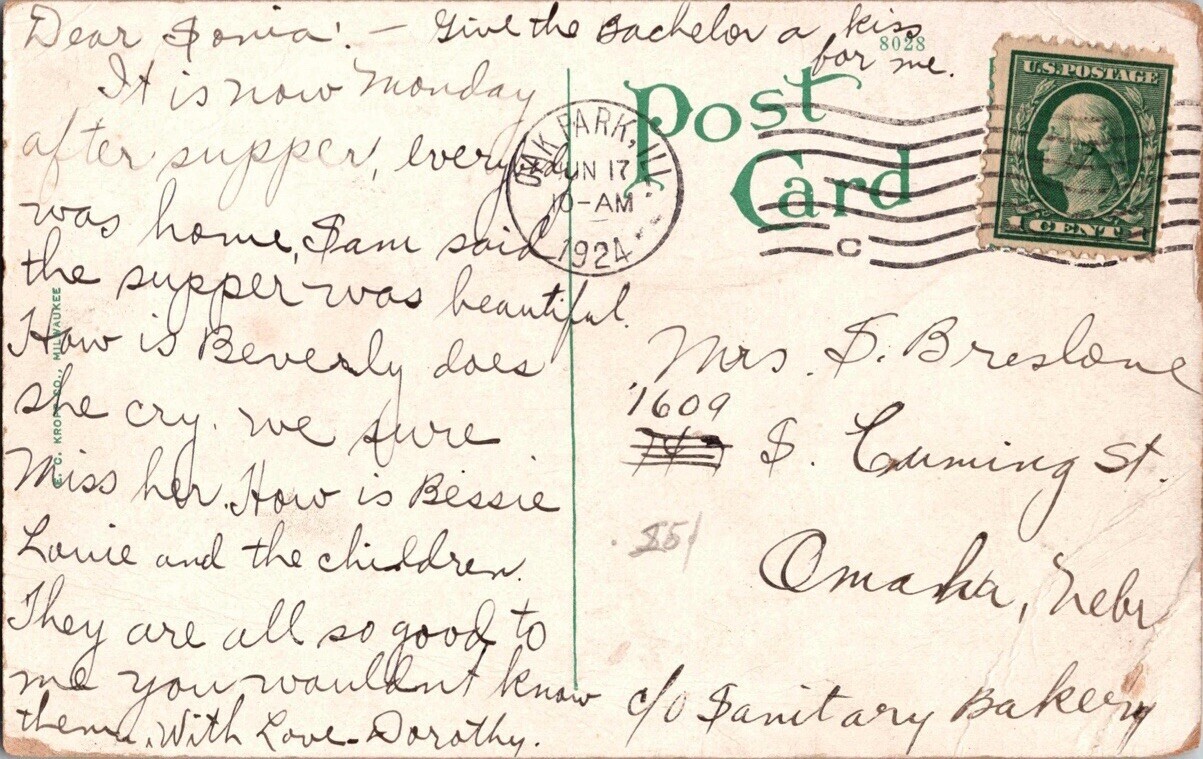 Dear Sonia! - Give the Bachelor a kiss
for me.
8028
It is now Monday
after supper, everybody
was home, Sam said
the supper was beautiful.
How is Beverly does
she cry. we sure
Miss her. How is Bessie
Louie and the children.
They are all so good to
me you wouldn't know
them. With Love - Dorothy.
E. C. KROPP CO., MILWAUKEE
Post
Card
OAK PARK, ILL.
JUN 17
10-AM
1924
C
U.S. POSTAGE
1 CENT 1
Mrs. S. Breslone
1609
S. Cuming St.
Omaha, Nebr
c/o Sanitary Bakery